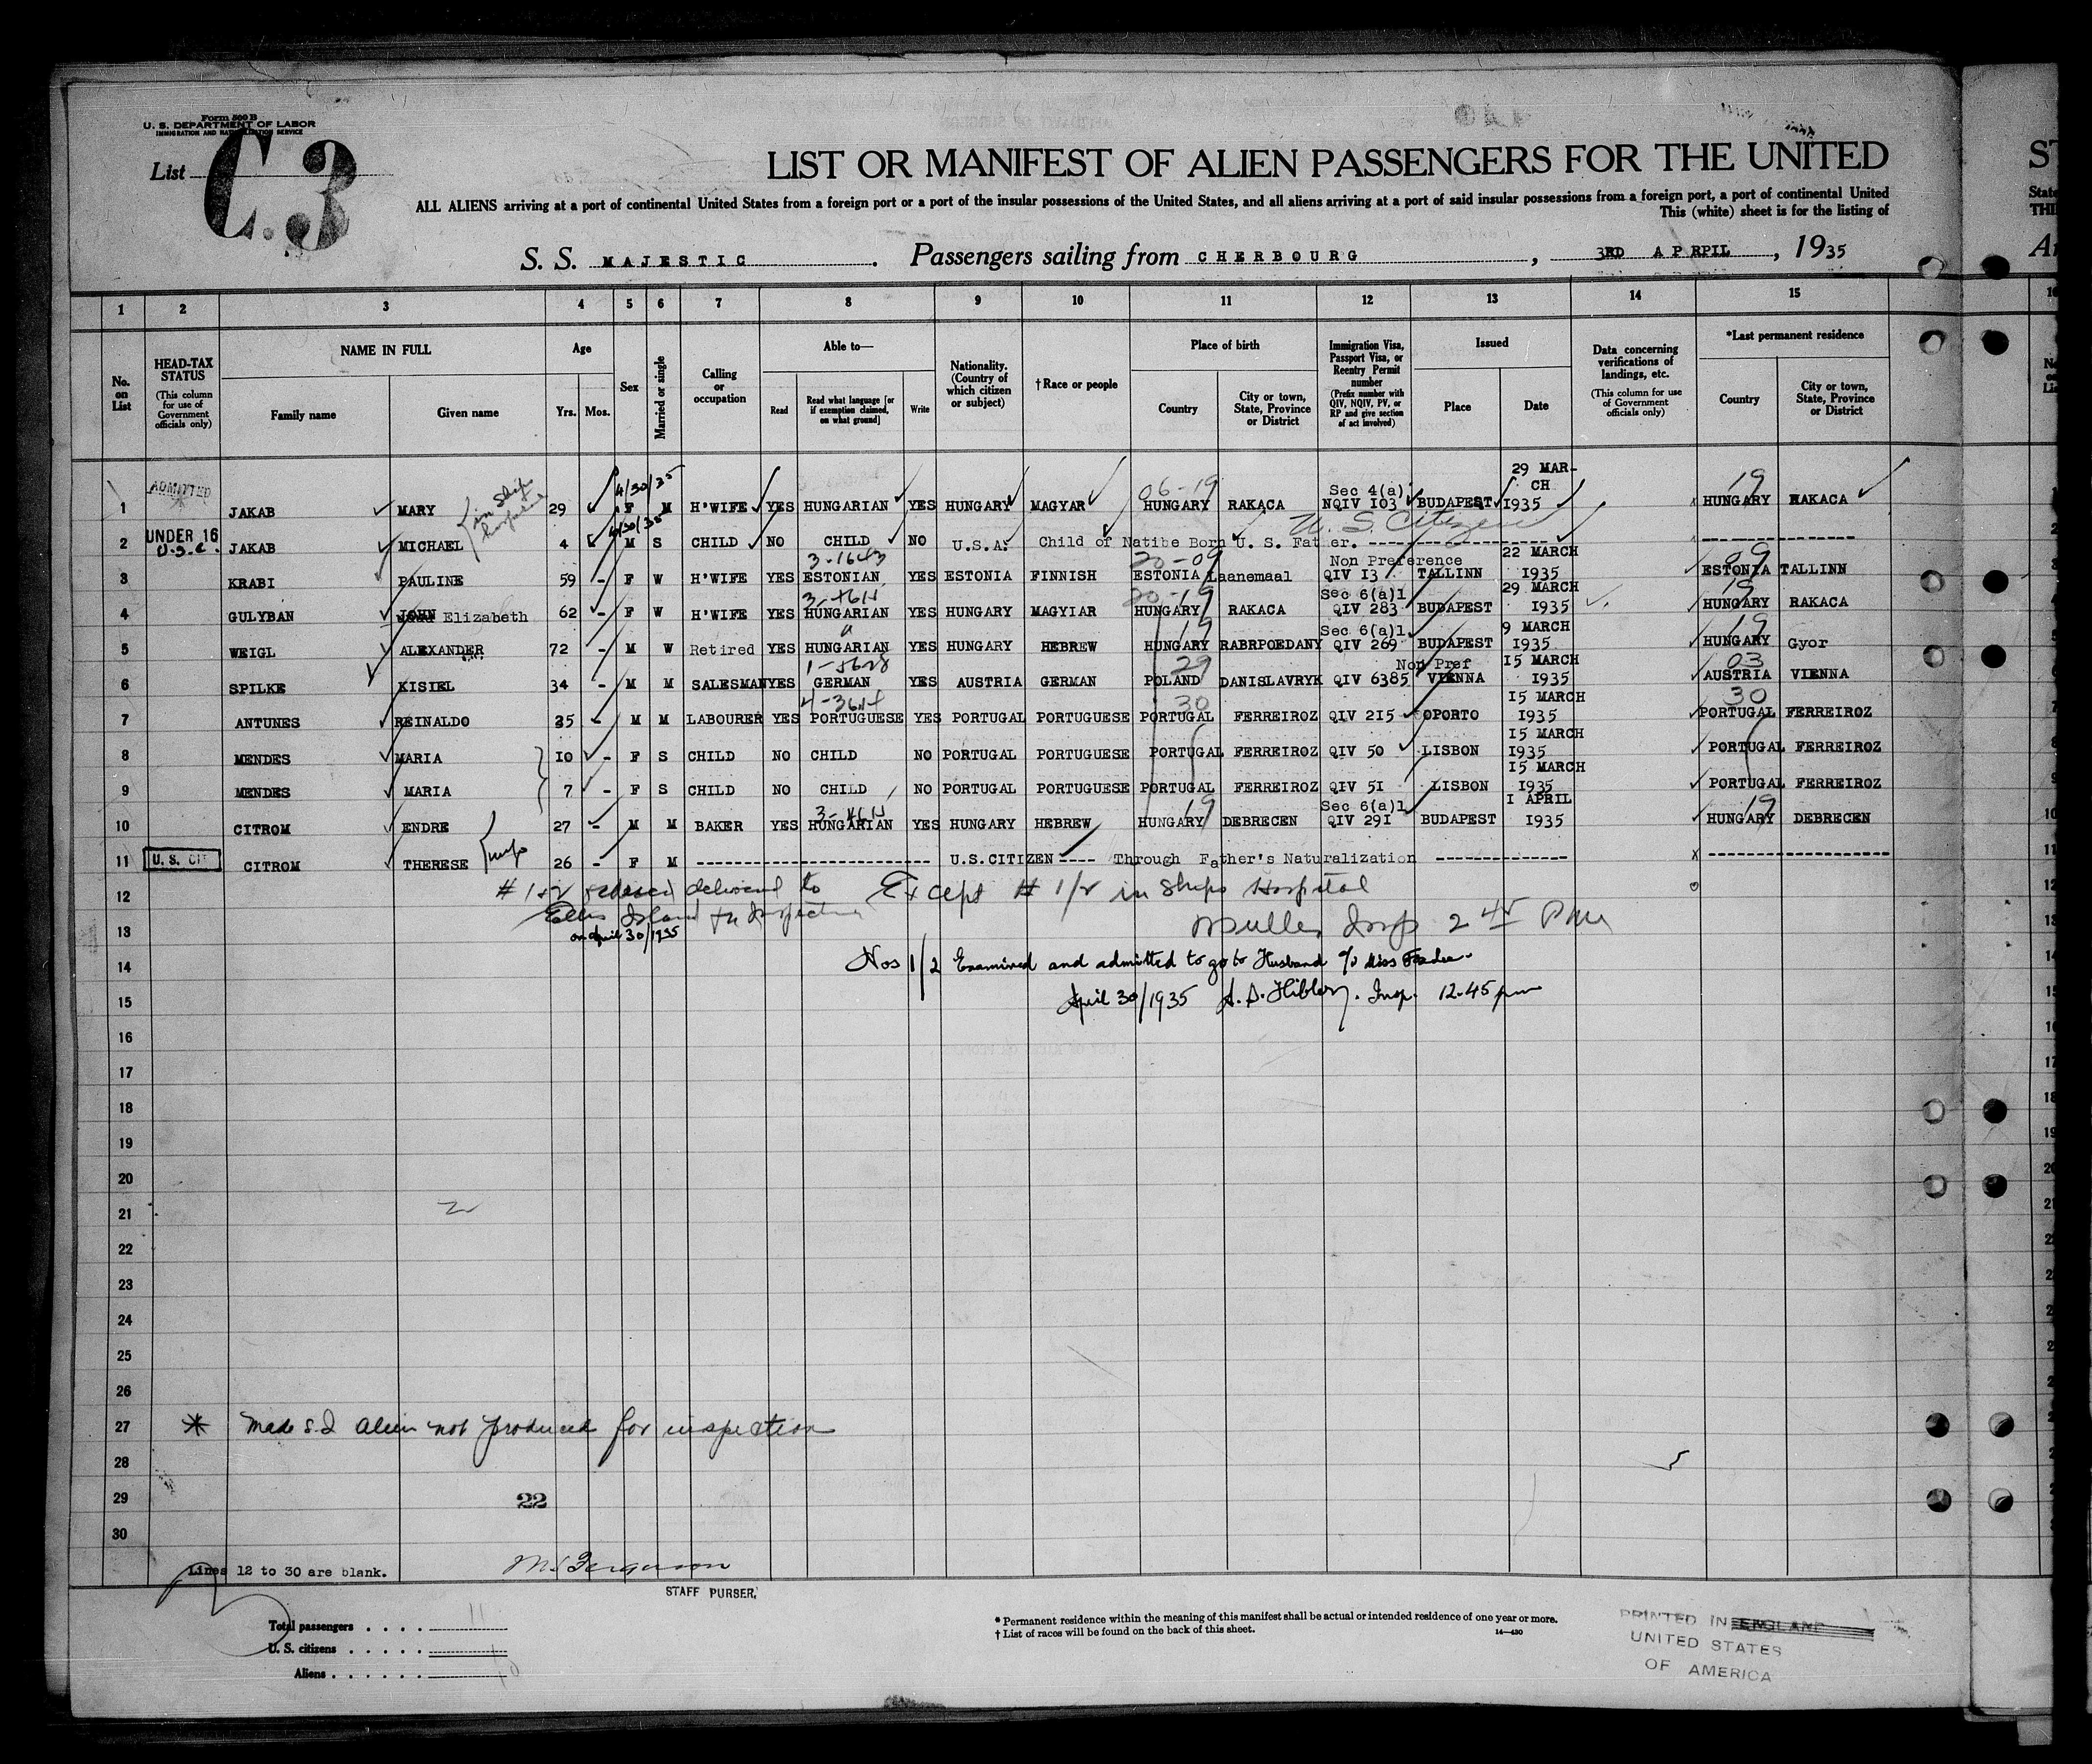 Form 500 B
U. S. DEPARTMENT OF LABOR
IMMIGRATION AND NATURALIZATION SERVICE
List C.3
LIST OR MANIFEST OF ALIEN PASSENGERS FOR THE UNITED
ALL ALIENS arriving at a port of continental United States from a foreign port or a port of the insular possessions of the United States, and all aliens arriving at a port of said insular possessions from a foreign port, a port of continental United
This (white) sheet is for the listing of
S. S. MAJESTIC. Passengers sailing from CHERBOURG, 3RD APRPIL, 1935
1 2 3 4 5 6 7 8 9 10 11 12 13 14 15
No. on List
HEAD-TAX STATUS (This column for use of Government officials only)
NAME IN FULL Family name Given name
Age Yrs. Mos.
Sex
Married or single
Calling or occupation
Able to— Read Read what language [or if exemption claimed, on what ground] Write
Nationality. (Country of which citizen or subject)
† Race or people
Place of birth Country City or town, State, Province or District
Immigration Visa, Passport Visa, or Reentry Permit number (Prefix number with QIV, NQIV, PV, or RP and give section of act involved)
Issued Place Date
Data concerning verifications of landings, etc. (This column for use of Government officials only)
*Last permanent residence Country City or town, State, Province or District
ADMITTED in Ship Hospital 4/30/35 06-19 Sec 4(a) 29 MAR-CH 19
1 JAKAB MARY 29 F M H'WIFE YES HUNGARIAN YES HUNGARY MAGYAR HUNGARY RAKACA NQIV 103 BUDAPEST 1935 HUNGARY RAKACA
UNDER 16 U.S.C. 4/30/35 U. S. Citizen
2 JAKAB MICHAEL 4 M S CHILD NO CHILD NO U.S.A. Child of Natibe Born U. S. Father.
3-1643 20-09 Non Preference 22 MARCH 09
3 KRABI PAULINE 59 - F W H'WIFE YES ESTONIAN YES ESTONIA FINNISH ESTONIA Laanemaal QIV 13 TALLINN 1935 ESTONIA TALLINN
20-19 Sec 6(a)1 29 MARCH 19
4 GULYBAN JOHN Elizabeth 62 - F W H'WIFE YES HUNGARIAN YES HUNGARY MAGYIAR HUNGARY RAKACA QIV 283 BUDAPEST 1935 HUNGARY RAKACA
19 Sec 6(a)1 9 MARCH 19
5 WEIGL ALEXANDER 72 - M W Retired YES HUNGARIAN YES HUNGARY HEBREW HUNGARY RABRPOEDANY QIV 269 BUDAPEST 1935 HUNGARY Gyor
29 Non Pref 15 MARCH 03
6 SPILKE KISIEL 34 - M M SALESMAN YES GERMAN YES AUSTRIA GERMAN POLAND DANISLAVRYK QIV 6385 VIENNA 1935 AUSTRIA VIENNA
30 15 MARCH 30
7 ANTUNES REINALDO 25 - M M LABOURER YES PORTUGUESE YES PORTUGAL PORTUGUESE PORTUGAL FERREIROZ QIV 215 OPORTO 1935 PORTUGAL FERREIROZ
15 MARCH
8 MENDES MARIA 10 - F S CHILD NO CHILD NO PORTUGAL PORTUGUESE PORTUGAL FERREIROZ QIV 50 LISBON 1935 PORTUGAL FERREIROZ
15 MARCH
9 MENDES MARIA 7 - F S CHILD NO CHILD NO PORTUGAL PORTUGUESE PORTUGAL FERREIROZ QIV 51 LISBON 1935 PORTUGAL FERREIROZ
19 Sec 6(a)1 1 APRIL 19
10 CITROM ENDRE 27 - M M BAKER YES HUNGARIAN YES HUNGARY HEBREW HUNGARY DEBRECEN QIV 291 BUDAPEST 1935 HUNGARY DEBRECEN
11 U. S. CIT CITROM THERESE 26 - F M U.S.CITIZEN Through Father's Naturalization
12 # 1&2 delivered to Except # 1/2 in Ships Hospital
13 Ellis Island for Inspection on April 30/1935 Insp 2 45 PM
14 Nos 1/2 Examined and admitted to go to Husband c/o Miss
15 April 30/1935 Insp. 12.45 pm
16
17
18
19
20
21
22
23
24
25
26
27 * Made S.I alien not produced for inspection
28
29 22
30
Lines 12 to 30 are blank.
M. Ferguson
STAFF PURSER.
Total passengers 11
U. S. citizens
Aliens
* Permanent residence within the meaning of this manifest shall be actual or intended residence of one year or more.
† List of races will be found on the back of this sheet.
14—430
PRINTED IN ENGLAND
UNITED STATES
OF AMERICA